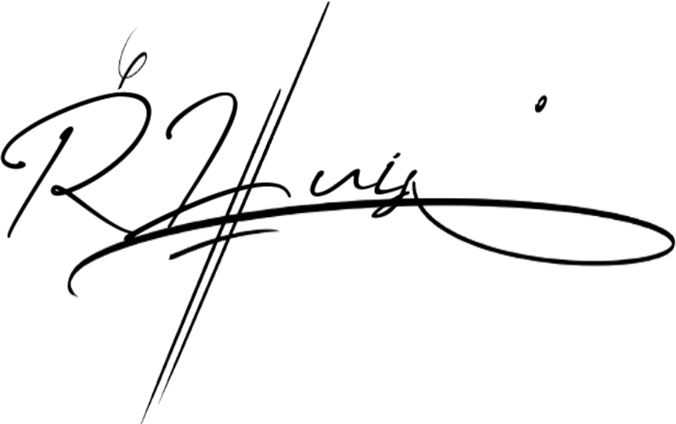 R Huis